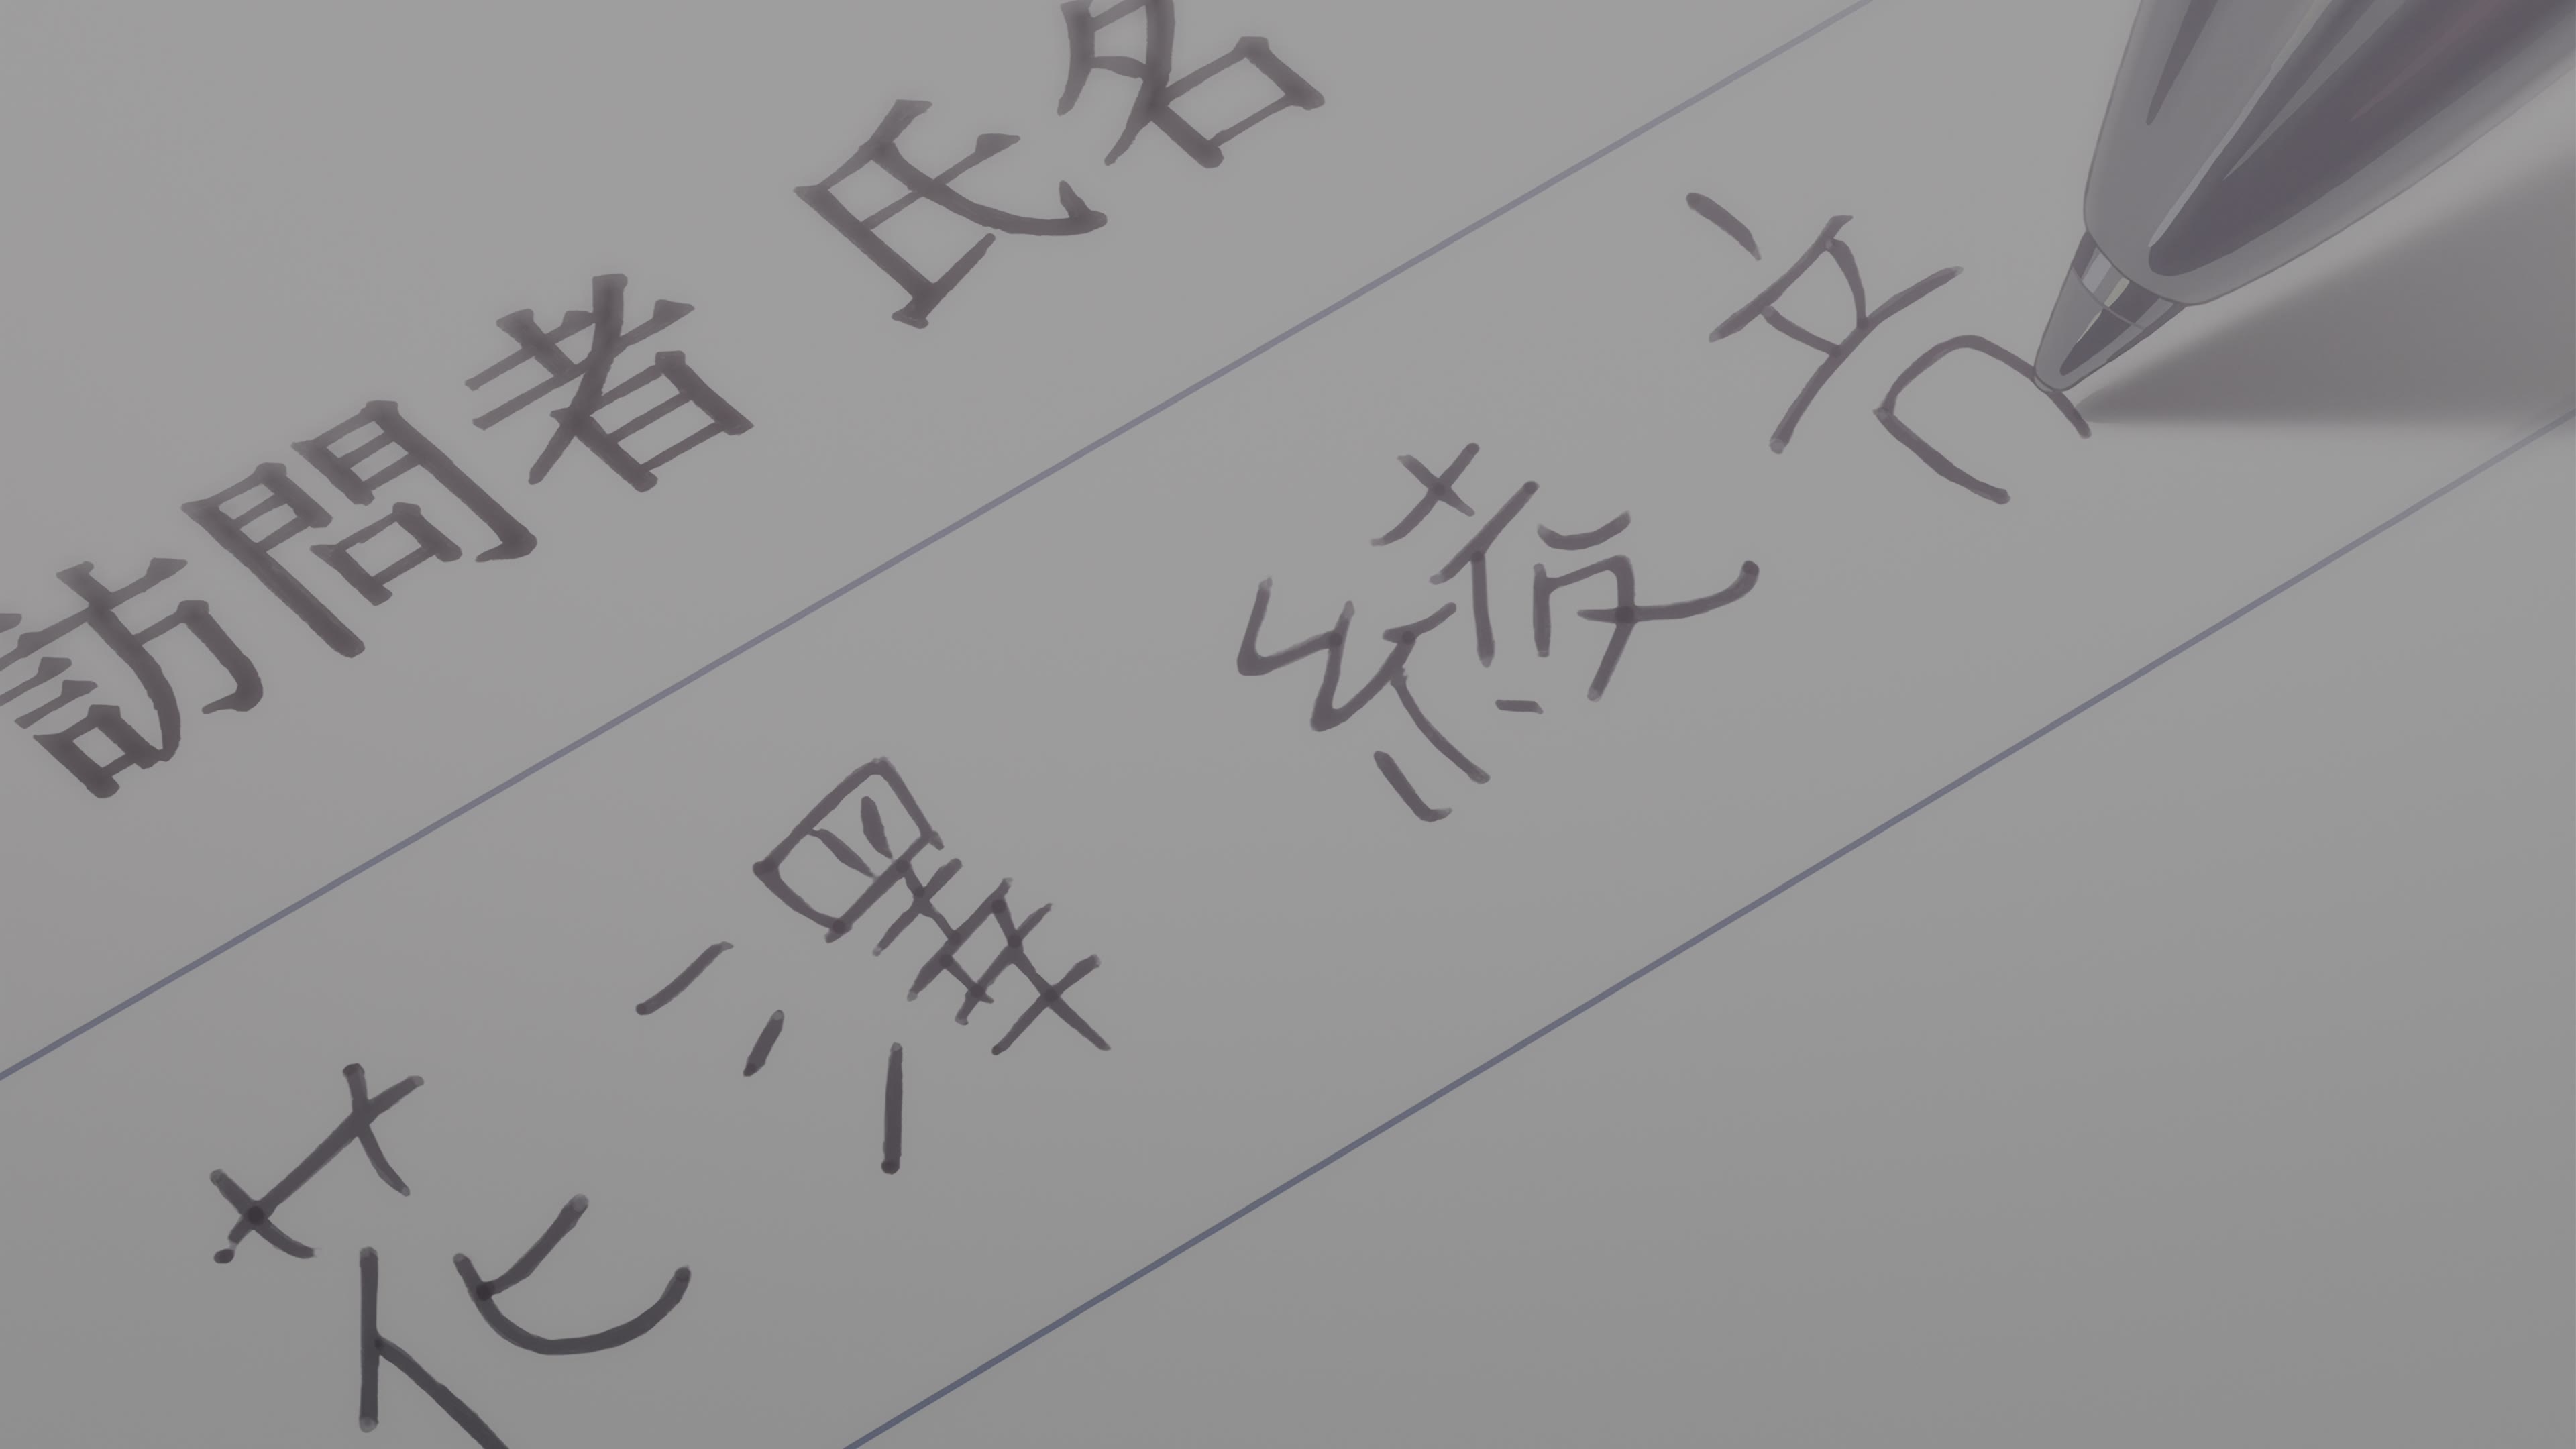 訪問者 氏名
花澤綾